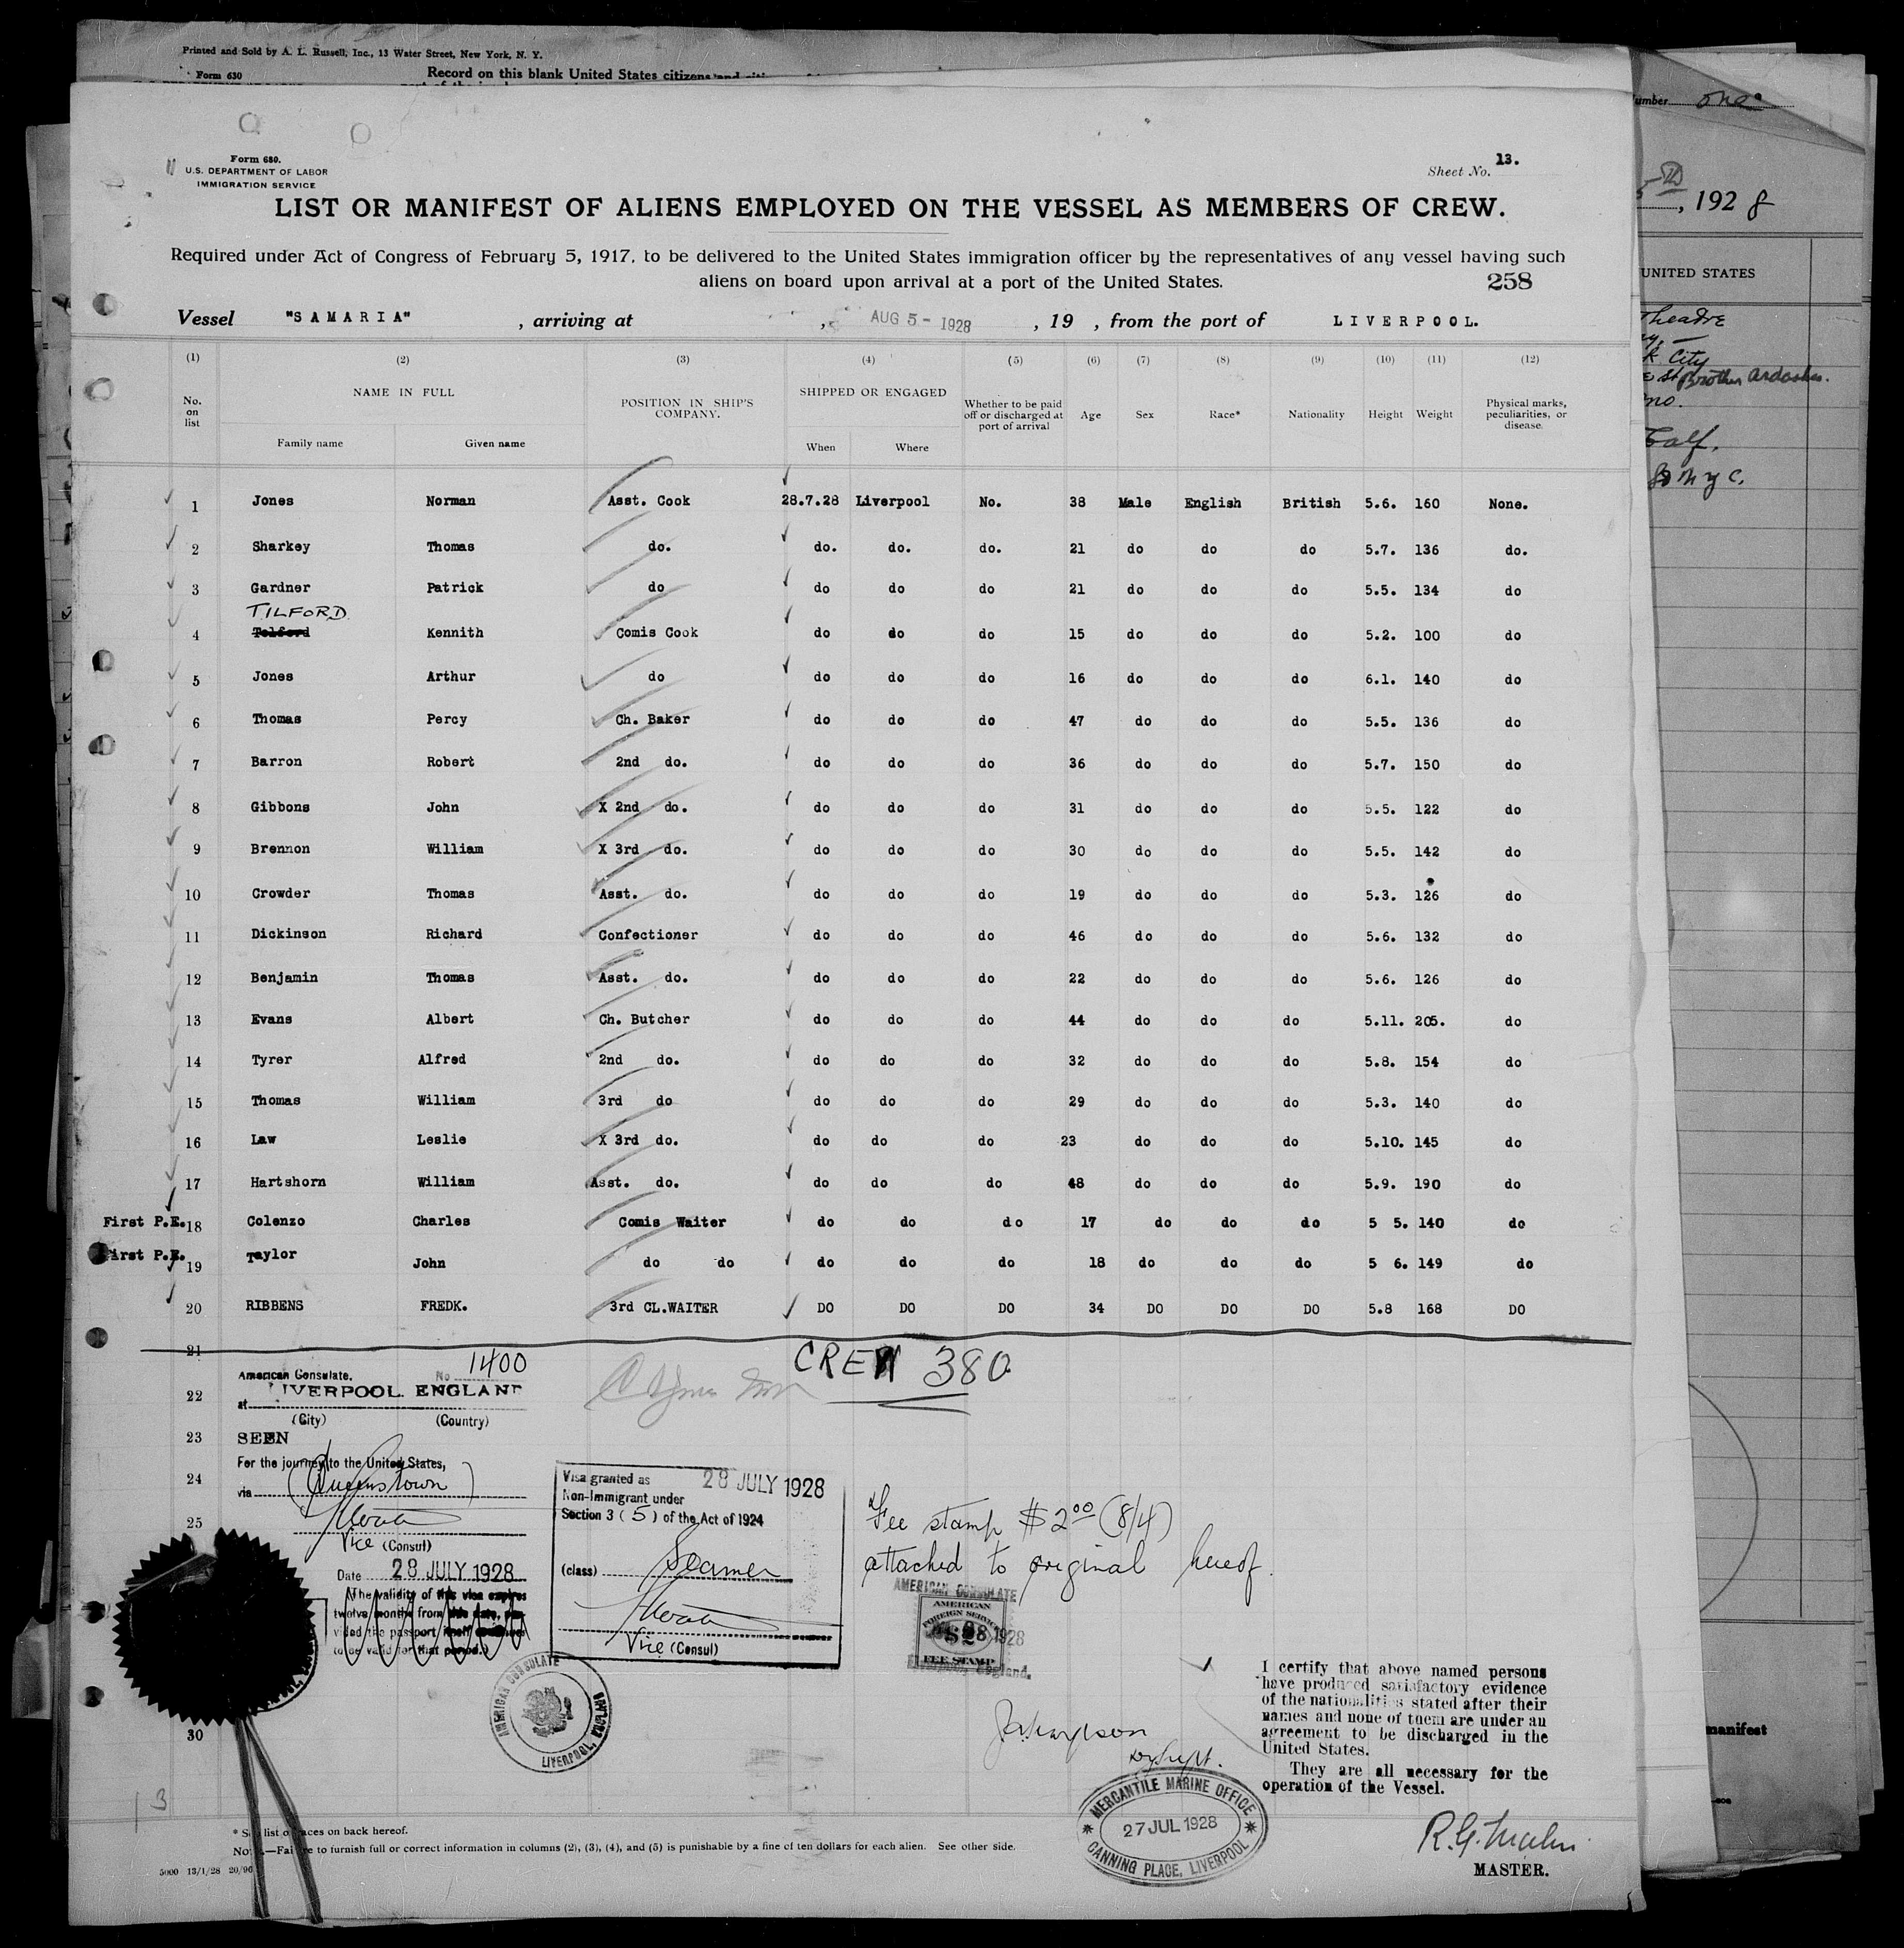 Printed and Sold by A. L. Russell, Inc., 13 Water Street, New York, N. Y.
Form 630
Record on this blank United States citizens and
Number one
, 1928
UNITED STATES
Theatre
k City
St Brother
no.
Calf.
N Y C.
manifest
Form 680.
U.S. DEPARTMENT OF LABOR
IMMIGRATION SERVICE
Sheet No. 13.
LIST OR MANIFEST OF ALIENS EMPLOYED ON THE VESSEL AS MEMBERS OF CREW.
Required under Act of Congress of February 5, 1917, to be delivered to the United States immigration officer by the representatives of any vessel having such
aliens on board upon arrival at a port of the United States.
258
Vessel "SAMARIA" , arriving at , AUG 5 - 1928 , 19 , from the port of LIVERPOOL.
(1) (2) (3) (4) (5) (6) (7) (8) (9) (10) (11) (12)
No. on list NAME IN FULL POSITION IN SHIP'S COMPANY. SHIPPED OR ENGAGED Whether to be paid off or discharged at port of arrival Age Sex Race* Nationality Height Weight Physical marks, peculiarities, or disease.
Family name Given name When Where
1 Jones Norman Asst. Cook 28.7.28 Liverpool No. 38 Male English British 5.6. 160 None.
2 Sharkey Thomas do. do. do. do. 21 do do do 5.7. 136 do.
3 Gardner Patrick do do do do 21 do do do 5.5. 134 do
TILFORD
4 Telford Kennith Comis Cook do do do 15 do do do 5.2. 100 do
5 Jones Arthur do do do do 16 do do do 6.1. 140 do
6 Thomas Percy Ch. Baker do do do 47 do do do 5.5. 136 do
7 Barron Robert 2nd do. do do do 36 do do do 5.7. 150 do
8 Gibbons John X 2nd do. do do do 31 do do do 5.5. 122 do
9 Brennon William X 3rd do. do do do 30 do do do 5.5. 142 do
10 Crowder Thomas Asst. do. do do do 19 do do do 5.3. 126 do
11 Dickinson Richard Confectioner do do do 46 do do do 5.6. 132 do
12 Benjamin Thomas Asst. do. do do do 22 do do do 5.6. 126 do
13 Evans Albert Ch. Butcher do do do 44 do do do 5.11. 205. do
14 Tyrer Alfred 2nd do. do do do 32 do do do 5.8. 154 do
15 Thomas William 3rd do do do do 29 do do do 5.3. 140 do
16 Law Leslie X 3rd do. do do do 23 do do do 5.10. 145 do
17 Hartshorn William Asst. do. do do do 48 do do do 5.9. 190 do
First P.E. 18 Colenzo Charles Comis Waiter do do do 17 do do do 5 5. 140 do
First P.E. 19 Taylor John do do do do do 18 do do do 5 6. 149 do
20 RIBBENS FREDK. 3rd CL.WAITER DO DO DO 34 DO DO DO 5.8 168 DO
21
CREW 380
American Consulate, No 1400
22 at LIVERPOOL. ENGLAND
(City) (Country)
23 SEEN
For the journey to the United States,
24 via (Queenstown)
25
Vice (Consul)
Date 28 JULY 1928
(The validity of this visa expires
twelve months from this date, pro-
vided the passport itself continues
to be valid for that period.)
30
Visa granted as 28 JULY 1928
Non-Immigrant under
Section 3 (5) of the Act of 1924
(class) Seamen
Vice (Consul)
AMERICAN CONSULATE
LIVERPOOL, ENGLAND
Fee stamp $2.00 (8/4)
attached to original hereof.
AMERICAN CONSULATE
AMERICAN
FOREIGN SERVICE
$2
28 1928
FEE STAMP
Liverpool, England.
I certify that above named persons
have produced satisfactory evidence
of the nationalities stated after their
names and none of them are under an
agreement to be discharged in the
United States.
They are all necessary for the
operation of the Vessel.
Dy Supt.
MERCANTILE MARINE OFFICE
27 JUL 1928
CANNING PLACE, LIVERPOOL
MASTER.
13
* See list of races on back hereof.
Note.—Failure to furnish full or correct information in columns (2), (3), (4), and (5) is punishable by a fine of ten dollars for each alien. See other side.
5000 13/1/28 20/96